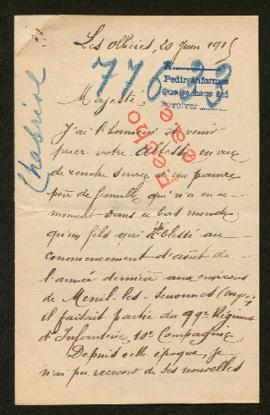 Les Ollières, 20 Juin 1915
77623
Pedir informes
Chabriol
Majesté
J'ai l'honneur de venir
prier votre Altesse en vue
de rendre service à un pauvre
père de famille qui n'a en ce
moment dans ce bas monde
qu'un fils qui blessé au
commencement d'août de
l'année dernière aux environs
de Menil-les-Senones (Vosges)
il faisait partie du 99e Régiment
d'Infanterie, 10e Compagnie
Depuis cette époque, je
n'ai pu recevoir de ses nouvelles